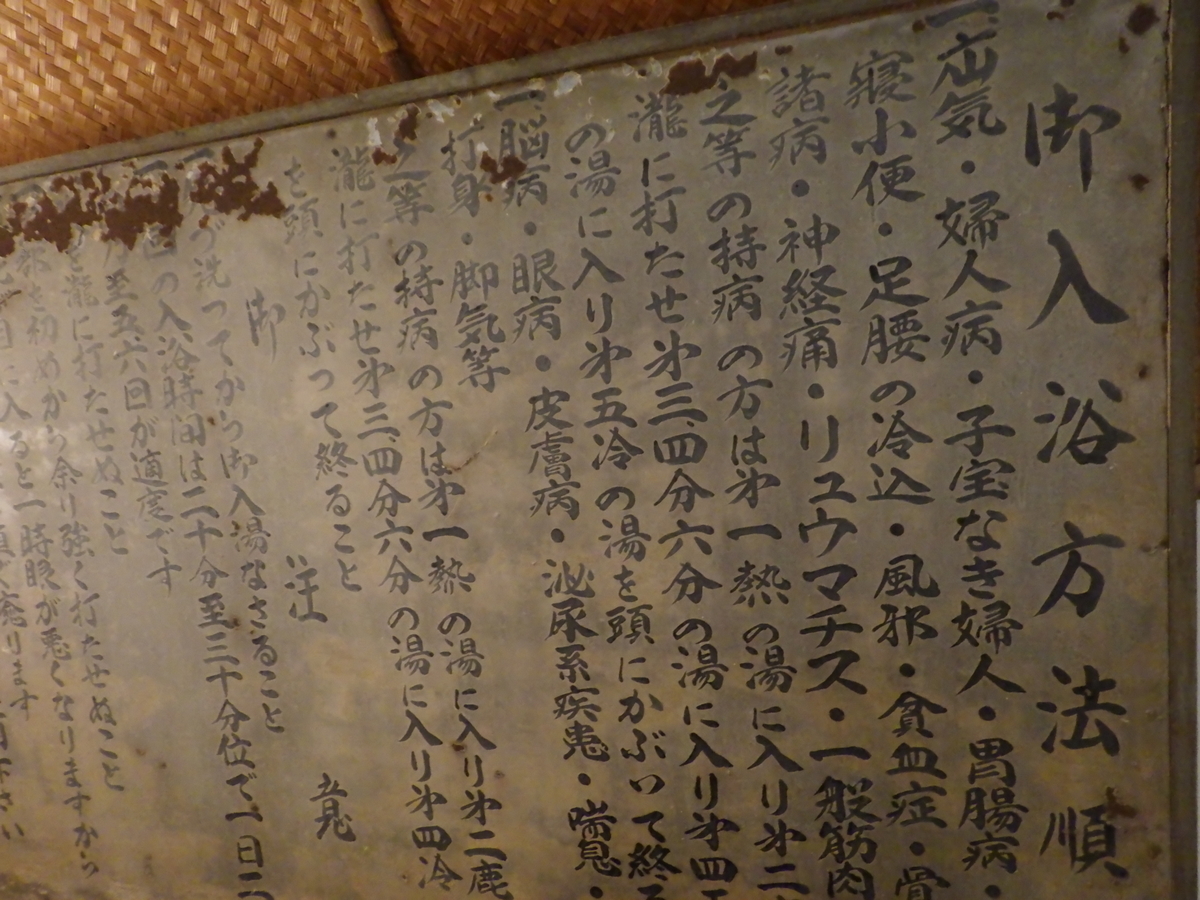 御入浴方法順
一、疝気・婦人病・子宝なき婦人・胃腸病・
寝小便・足腰の冷込・風邪・貧血症・骨
諸病・神経痛・リュウマチス・一般筋肉
之等の持病の方は㐧一熱の湯に入り㐧二
瀧に打たせ㐧三、四分六分の湯に入り㐧四
の湯に入り㐧五冷の湯を頭にかぶいて終る
一、脳病・眼病・皮膚病・泌尿系疾患・喘息・
打身・脚気等
之等の持病の方は㐧一熱の湯に入り㐧二鹿
瀧に打たせ㐧三、四分六分の湯に入り㐧四冷
を頭にかぶって終ること
御注意
づ洗つてから御入湯なさること
回の入浴時間は二十分至三十分位で一日二
至五六回が適度です
瀧に打たせぬこと
初めから余り強く打たせぬこと
入ると一時眼が悪くなりますから
癒ります